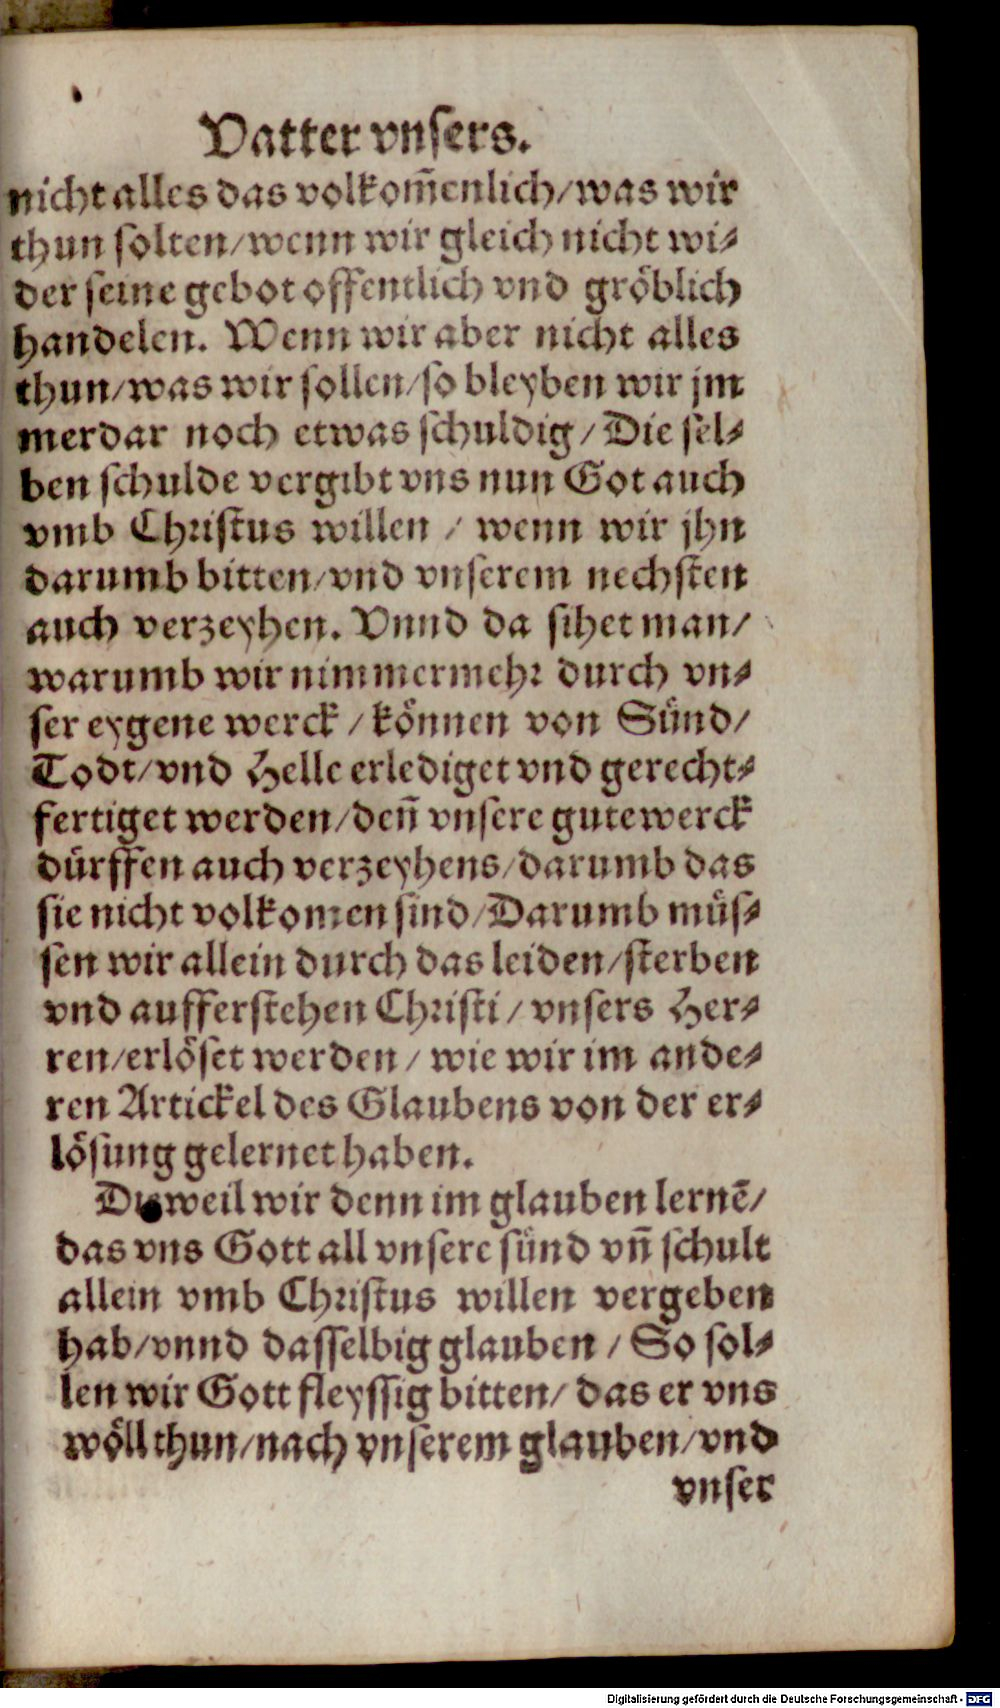 Vatter vnsers.
nicht alles das volkom̄enlich/was wir
thun solten/wenn wir gleich nicht wi⸗
der seine gebot offentlich vnd gröblich
handelen. Wenn wir aber nicht alles
thun/was wir sollen/so bleyben wir jm
merdar noch etwas schuldig/Die sel⸗
ben schulde vergibt vns nun Got auch
vmb Christus willen / wenn wir jhn
darumb bitten/vnd vnserem nechsten
auch verzeyhen. Vnnd da sihet man/
warumb wir nimmermehr durch vn⸗
ser eygene werck / können von Sünd/
Todt/vnd Helle erlediget vnd gerecht⸗
fertiget werden/den̄ vnsere gute werck
dürffen auch verzeyhens/darumb das
sie nicht volkomen sind/Darumb müs⸗
sen wir allein durch das leiden/sterben
vnd aufferstehen Christi / vnsers Her⸗
ren/erlöset werden / wie wir im ande⸗
ren Artickel des Glaubens von der er⸗
lösung gelernet haben.
Dieweil wir denn im glauben lernē/
das vns Gott all vnsere sünd vn̄ schult
allein vmb Christus willen vergeben
hab/vnnd dasselbig glauben / So sol⸗
len wir Gott fleyssig bitten/ das er vns
wöll thun/nach vnserem glauben/vnd
vnser
Digitalisierung gefördert durch die Deutsche Forschungsgemeinschaft - DFG